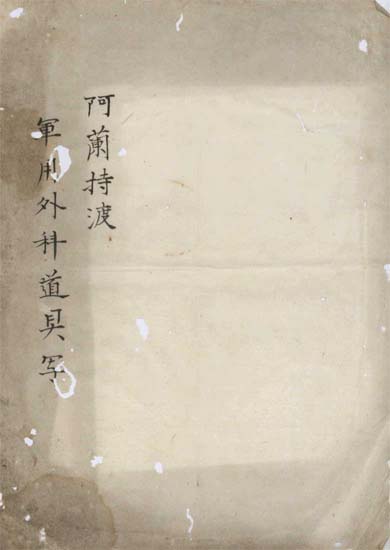 阿蘭持渡
軍用外科道具写